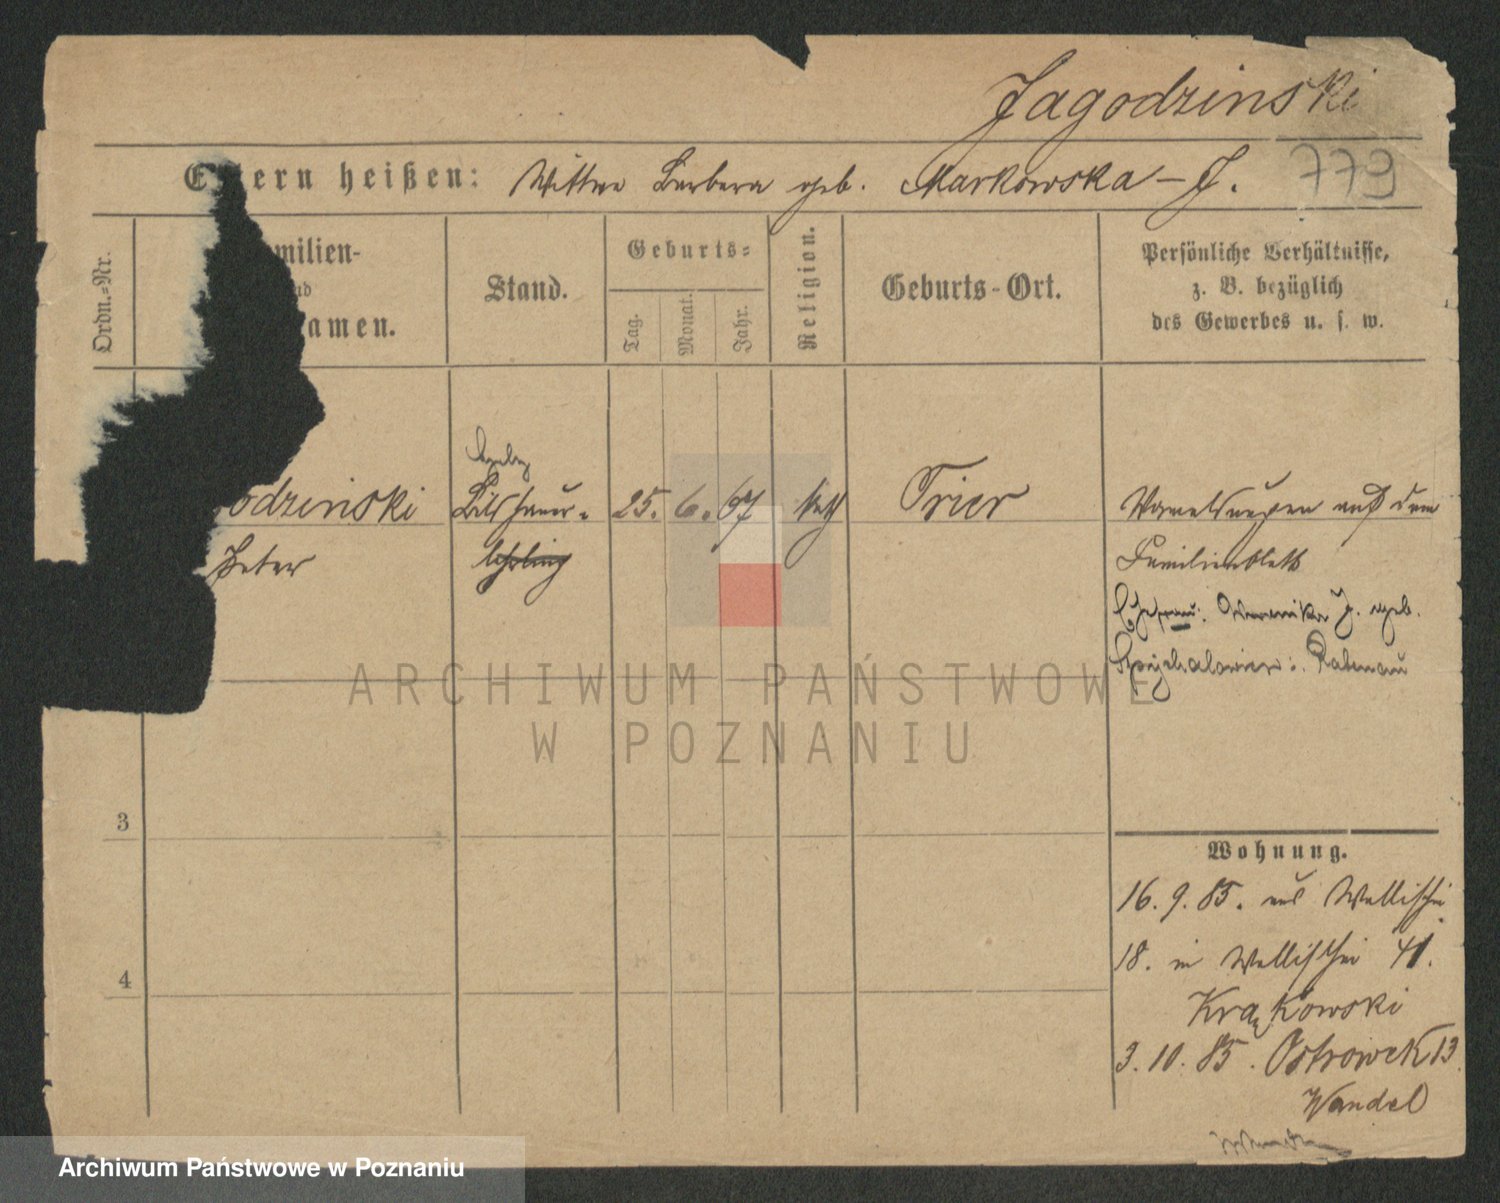 Jagodzinski
Eltern heißen: Wittwe Barbara geb. Markowska - J. 779
Ordn.-Nr.
amilien-
nd
amen.
Stand.
Geburts-
Tag.
Monat.
Jahr.
Religion.
Geburts-Ort.
Persönliche Verhältnisse,
z. B. bezüglich
des Gewerbes u. s. w.
odzinski
Peter
Bildhauer-
lehrling
25. 6. 67
kath
Trier
auf dem
Familienblatt
Ehefrau: J. geb.
3
4
Wohnung.
16. 9. 85. aus Wallischei
18. in Wallischei 41.
Krąkowski
3. 10. 85. Ostrowek 13
Wandel
ARCHIWUM PAŃSTWOWE
W POZNANIU
Archiwum Państwowe w Poznaniu